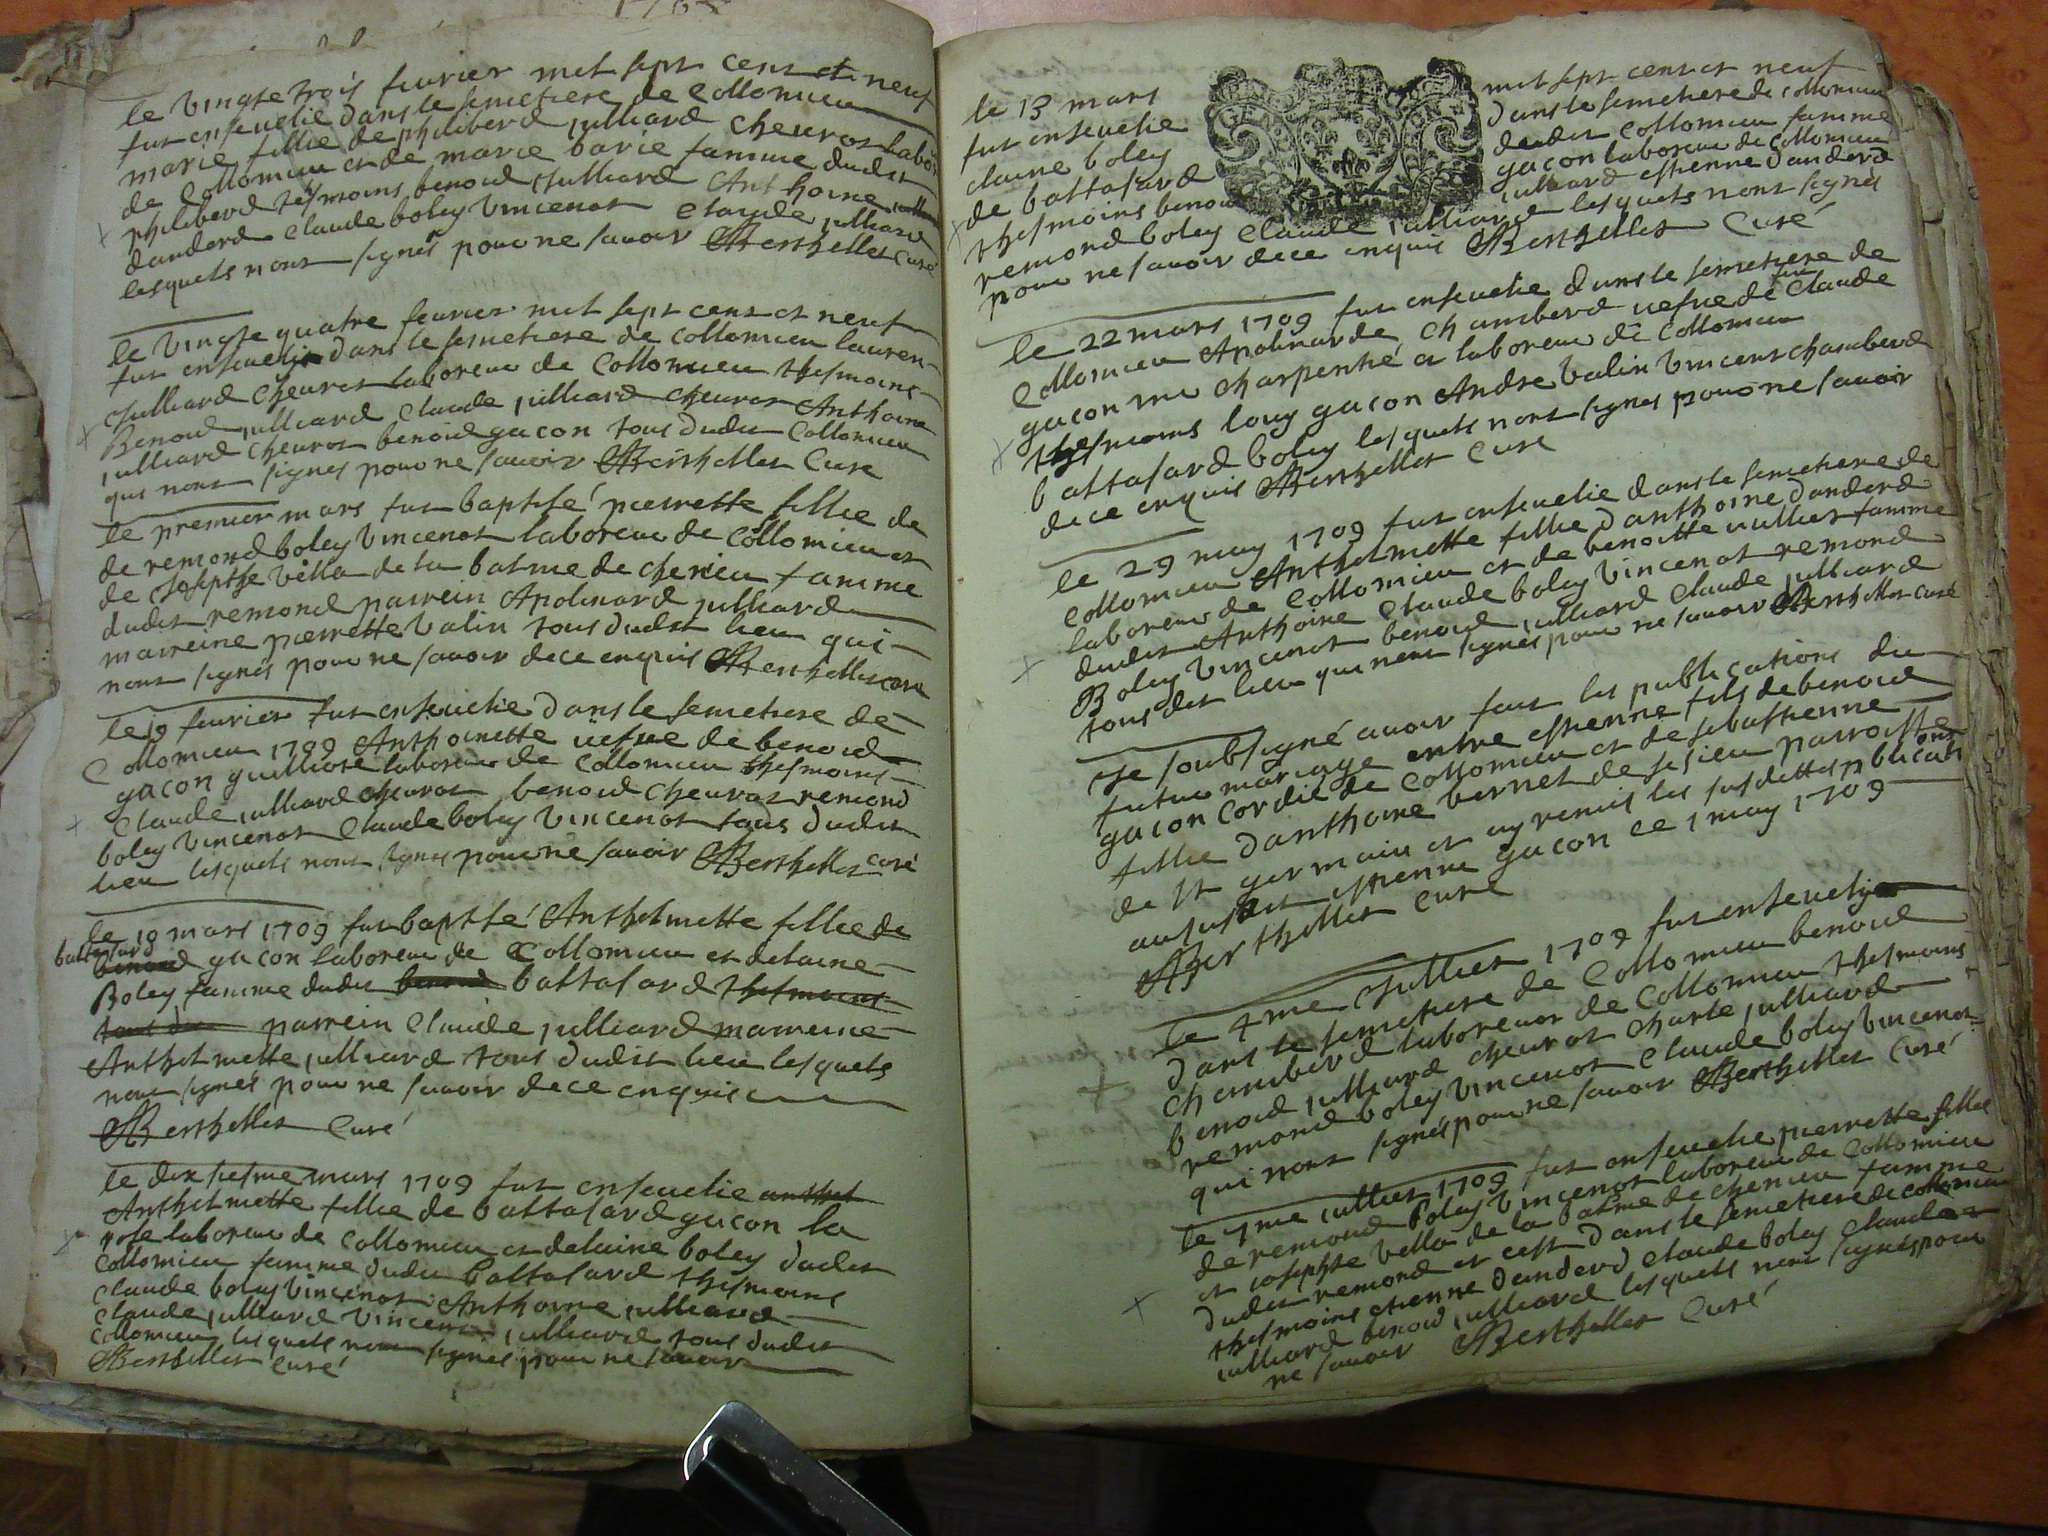 le vingte trois feurier mil sept cent et neuf
fut enseuelie dans le semetiere de Collomieu
marie fillie de philiberd julliard cheuros labo
de Collomieu et de marie barie famme dudit
philiberd tesmoins benoid Julliard Anthoine
danderd claude boley vincenot claude julliard
lesquels nont signés pour ne sauoir Berthellet curé
le vingte quatre feurier mil sept cent et neuf
fut enseueli dans le semetiere de Collomieu lauren
Julliard cheurot laboreur de Collomieu thesmoins
Benoid julliard claude julliard cheurot Anthoine
julliard cheurot benoid gacon tous dudit Collomieu
qui nont signés pour ne sauoir Berthellet Cure
le premier mars fut baptisé pierrette fillie de
de remond boley vincenot laboreur de Collomieu et
de Josepthe vella de la balme de cherieu famme
dudit remond parrein Apolinard julliard
marreine pierrette valin tous dudit lieu qui
nont signés pour ne sauoir de ce enquis Berthellet cure
le 19 feurier fut enseuelie dans le semetiere de
Collomieu 1709 Anthoinette uefue de benoid
gacon guilliase laboreur de Collomieu thesmoins
Claude julliard cheurot benoid cheurot remond
boley vincenot claude boley vincenot tous dudit
lieu lesquels nont signes pour ne sauoir Berthellet curé
le 10 mars 1709 fut baptisé Anthelmette fillie de
baltasard
benoid gacon laboreur de Collomieu et de laine
Boley famme dudit benoid baltasard thesmoins
tous du parrein Claude julliard marreine
Anthelmette julliard tous dudit lieu lesquels
nont signés pour ne sauoir de ce enquis
Berthellet Curé
le dix siesme mars 1709 fut enseuelie anthel
Anthelmette fillie de baltasard gacon la
rose laboreur de Collomieu et de laine boley dudit
Collomieu famme dudit baltasard thesmoins
Claude boley vincenot Anthoine julliard
Claude julliard vincent julliard tous dudit
Collomieu lesquels nont signes pour ne sauoir
Berthellet curé
le 13 mars mil sept cent et neuf
fut enseuelie dans le semetiere de Collomieu
claine boley dudit Collomieu famme
de baltasard gacon laboreur de Collomieu
thesmoins benoid julliard estienne danderd
remond boley claude julliard lesquels nont signés
pour ne sauoir de ce enquis Berthellet Curé
le 22 mars 1709 fut enseuelie dans le semetiere de
Collomieu Apolinarde chamberd uefue de feu Claude
gacon me charpentié et laboreur de Collomieu
thesmoins louy gacon Andre valin vincent chamberd
baltasard boley lesquels nont signés pour ne sauoir
de ce enquis Berthellet Cure
le 29 may 1709 fut enseuelie dans le semetiere de
Collomieu Anthelmette fillie danthoine danderd
laboreur de Collomieu et de benoitte uullier famme
dudit Anthoine Claude boley vincenot remond
Boley vincenot benoid julliard claude julliard
tous dit lieu qui nont signés pour ne sauoir Berthellet curé
Je soubsigné auoir fait les publications du
futur mariage entre estienne fils de benoid
gacon Cordié de Collomieu et de sebastienne
fillie danthoine bernet de sesieu parroisse
de st germain et ay remis les susdittes publications
au susdit estienne gacon ce 1 may 1709
Berthellet curé
le 4me Juillet 1709 fut enseuely
dans le semetiere de Collomieu benoid
chamberd laboreur de Collomieu thesmoins
benoid julliard cheurot charle julliard
remond boley vincenot claude boley vincenot
qui nont signés pour ne sauoir Berthellet Curé
le 7me juillet 1709 fut enseuelie pierrette fillie
de remond boley vincenot laboreur de Collomieu
et josephte vella de la balme de cherieu famme
dudit remond et cest dans le semetiere de Collomieu
thesmoins etienne danderd claude boley claude
julliard benoid julliard lesquels nont signés pour
ne sauoir Berthellet Curé